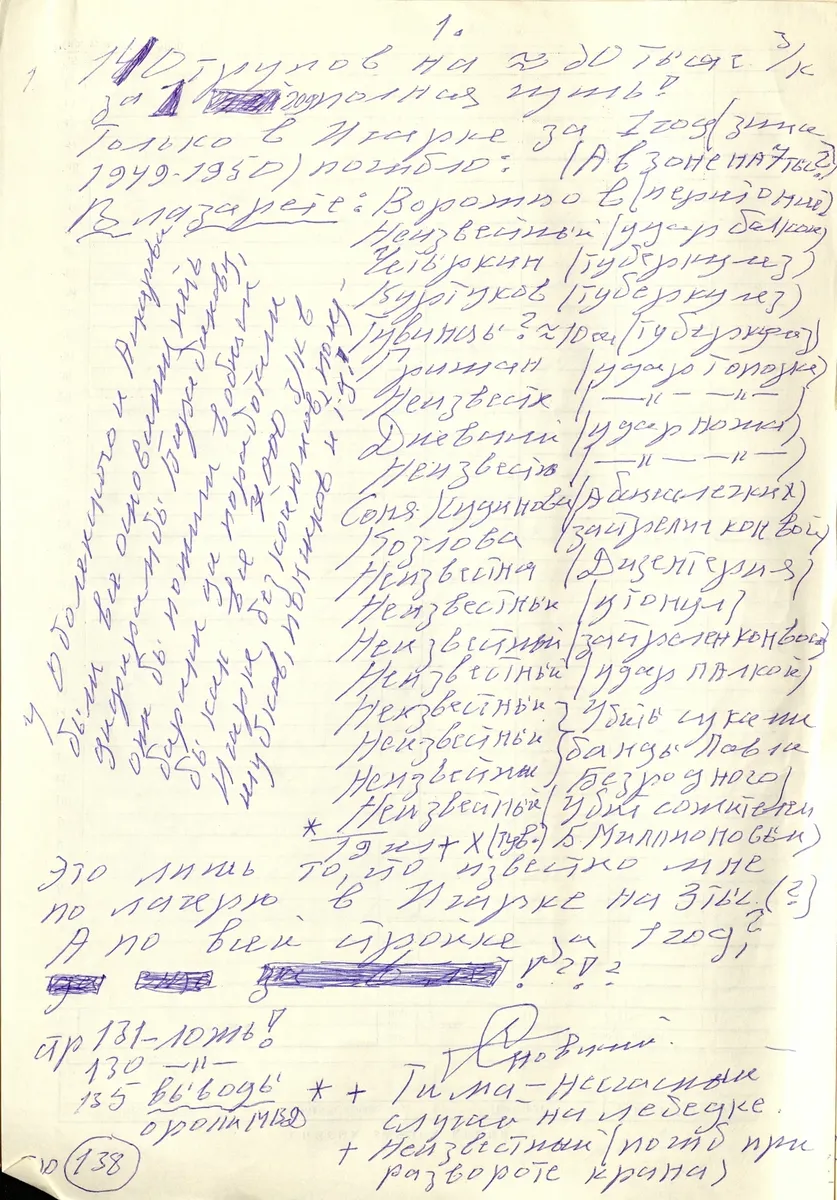 1.
140 трупов на ≈ 80 тысяч з/к
за 1 год полная чушь!
Только в Игарке за 1 год (зима
1949-1950) погибло: (А в зоне на 7 тыс?)
В лазарете: (перитонит)
Неизвестный (удар балкой)
Четыркин (туберкулез)
Куртуков (туберкулез)
Тувинцы? ≈ 10 ч (туберкулез)
Гришан (удар топора)
Неизвестн (—"— —"—)
Дневный (удар ножа)
Неизвестн (—"— —"—)
Соня Кудинова
Козлова (застрелил конвой)
Неизвестна (Дизентерия)
Неизвестный (утонул)
Неизвестный (застрелен конвоем)
Неизвестный (удар палкой)
Неизвестный } Убиты суками
Неизвестный } банды Павла
Неизвестный } Безродного)
Неизвестный (Убит сожителем
* 19 чел + X (тув.) Б Миллионовым)
У Оболенского и Анучина
были все основания петь
дифирамбы Барабанову,
они бы пожили в общем
бараке да поработали
бы как все 7000 з/к в
Игарке, без костюмов,
шубков, пончиков и т.д.!
Это лишь то, что известно мне
по лагерю в Игарке на 3 тыс. (?)
А по всей стройке за 1 год?
!?!?
стр 131 - ложь!
130 —"—
135 выводы
о роли МВД
* + Тима - несчастный
случай на лебедке.
+ Неизвестный (погиб при
развороте крана)
138